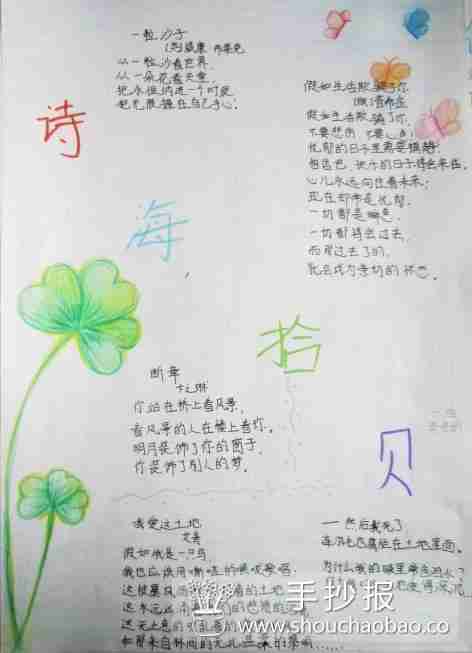 一粒沙子
(英)威廉·布莱克
从一粒沙看世界,
从一朵花看天堂,
把永恒纳进一个时辰,
把无限握在自己手心。
假如生活欺骗了你
普希金
假如生活欺骗了你,
不要悲伤 不要心急!
忧郁的日子里需要镇静:
相信吧 快乐的日子将会来临。
心儿永远向往着未来;
现在却常是忧郁。
一切都是瞬息,
一切都将会过去,
而那过去了的,
就会成为亲切的怀恋。
诗
海
拾
贝
断章
卞之琳
你站在桥上看风景,
看风景的人在楼上看你。
明月装饰了你的窗子,
你装饰了别人的梦。
我爱这土地
艾青
假如我是一只鸟,
我也应该用嘶哑的喉咙歌唱:
这被暴风
的土地,
这永远
我们的悲愤的河
这无止息的
来自林间的无
——然后我死了,
连羽毛也腐烂在土地里面。
为什么我的眼里常含泪水?
手抄报
www.shouchaobao.co